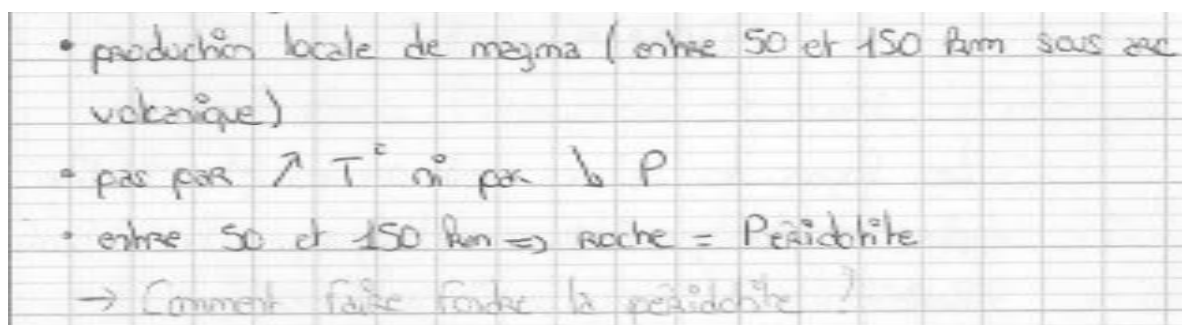 • production locale de magma (entre 50 et 150 km sous arc
volcanique)
• pas par ↗ T° ni par ↘ P
• entre 50 et 150 km => Roche = Péridotite
→ Comment faire fondre la péridotite ?